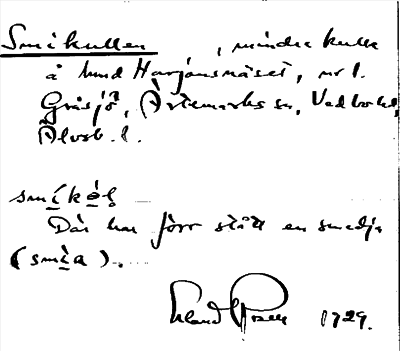 Smikullen , mindre kulle
å hmd Harjansnäset, nr 1.
Gråsjö, Ärtemarks sn, Vedbo hd,
Älvsb. l.
Där har förr stått en smedja
Erland Rosell 1929.